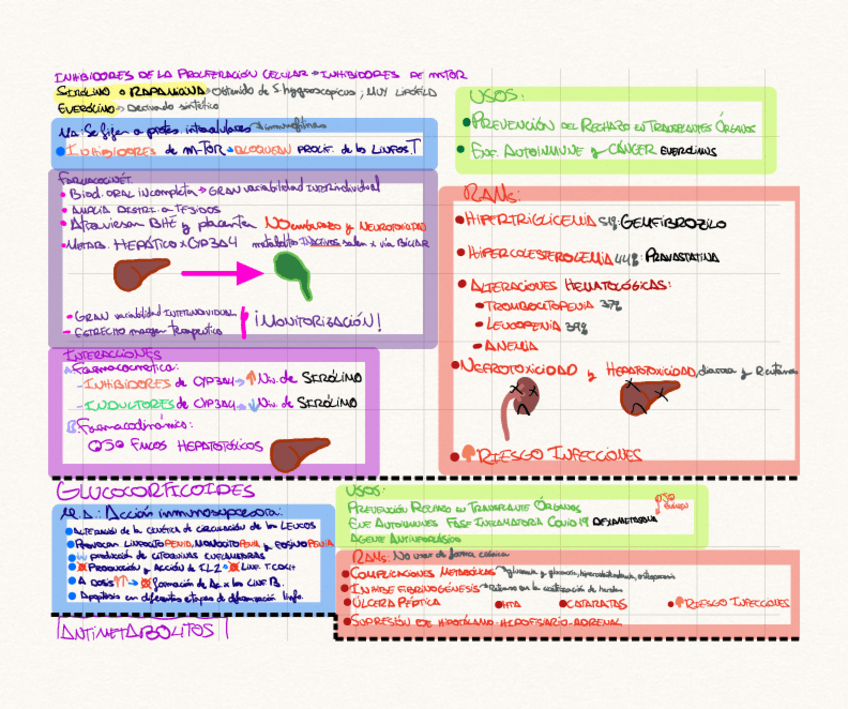 INHIBIDORES DE LA PROLIFERACIÓN CELULAR → INHIBIDORES DE mTOR
SIROLIMO o RAPAMICINA → obtenido de S. hygroscopicus, MUY LIPÓFILO
EVEROLIMO → Derivado sintético
M.A: Se fijan a protes. intracelulares → inmunofilinas
INHIBIDORES de m-TOR → BLOQUEAN PROLIF. de los LINFOS.T
FARMACOCINÉT.
Biod. ORAL incompleta → GRAN variabilidad INTERindividual
AMPLIA DISTRI. a TEJIDOS
Atraviesan BHE y placenta NO embarazo y NEUROTOXICIDAD
METAB. HEPÁTICO x CYP3A4 metabolitos INACTIVOS salen x vía BILIAR
GRAN variabilidad INTERINDIVIDUAL
ESTRECHO margen terapeutico
¡MONITORIZACIÓN!
INTERACIONES
Farmacocinética:
- INHIBIDORES de CYP3A4 → ↑ Niv. de SIROLIMO
- INDUCTORES de CYP3A4 → ↓ Niv. de SIROLIMO
Farmacodinámica:
OJO FMCOS HEPATOTÓXICOS
USOS:
PREVENCIÓN DEL RECHAZO EN TRANSPLANTES ÓRGANOS
ENF. AUTOINMUNE y CÁNCER EVEROLIMUS
RAMs:
HIPERTRIGLICEMIA 51%: GEMFIBROZILO
HIPERCOLESTEROLEMIA 44%: PRAVASTATINA
ALTERACIONES HEMATOLÓGICAS:
TROMBOCITOPENIA 37%
LEUCOPENIA 39%
ANEMIA
NEFROTOXICIDAD y HEPATOTOXICIDAD, diarrea y
↑ RIESGO INFECCIONES
GLUCOCORTICOIDES
M.A.: Acción inmunosupresora:
ALTERACIÓN DE LA CINÉTICA DE CIRCULACIÓN DE LOS LEUCOS
PROVOCAN LINFOCITOPENIA, MONOCITOPENIA y EOSINOPENIA
↓ producción de CITOQUINAS INFLAMADORAS
PRODUCCIÓN y ACCIÓN DE IL2 → LINF. T
A DOSIS ↑↑ → formación de Ac x los LINF B.
Apoptosis en diferentes etapas de linfo.
USOS:
PREVENCIÓN RECHAZO EN TRANSPLANTE ÓRGANOS
ENF AUTOINMUNES FASE INFLAMATORIA COVID 19 DEXAMETASONA
AGENTE ANTINEOPLÁSICO
RAMs: No usar de forma crónica
COMPLICACIONES METABÓLICAS →
INHIBE FIBRINOGÉNESIS → Retraso en la cicatrización de heridas
ÚLCERA PÉPTICA HTA CATARATAS ↑ RIESGO INFECCIONES
SUPRESIÓN EJE HIPOTÁLAMO-HIPOFISIARIO-ADRENAL
ANTIMETABOLITOS